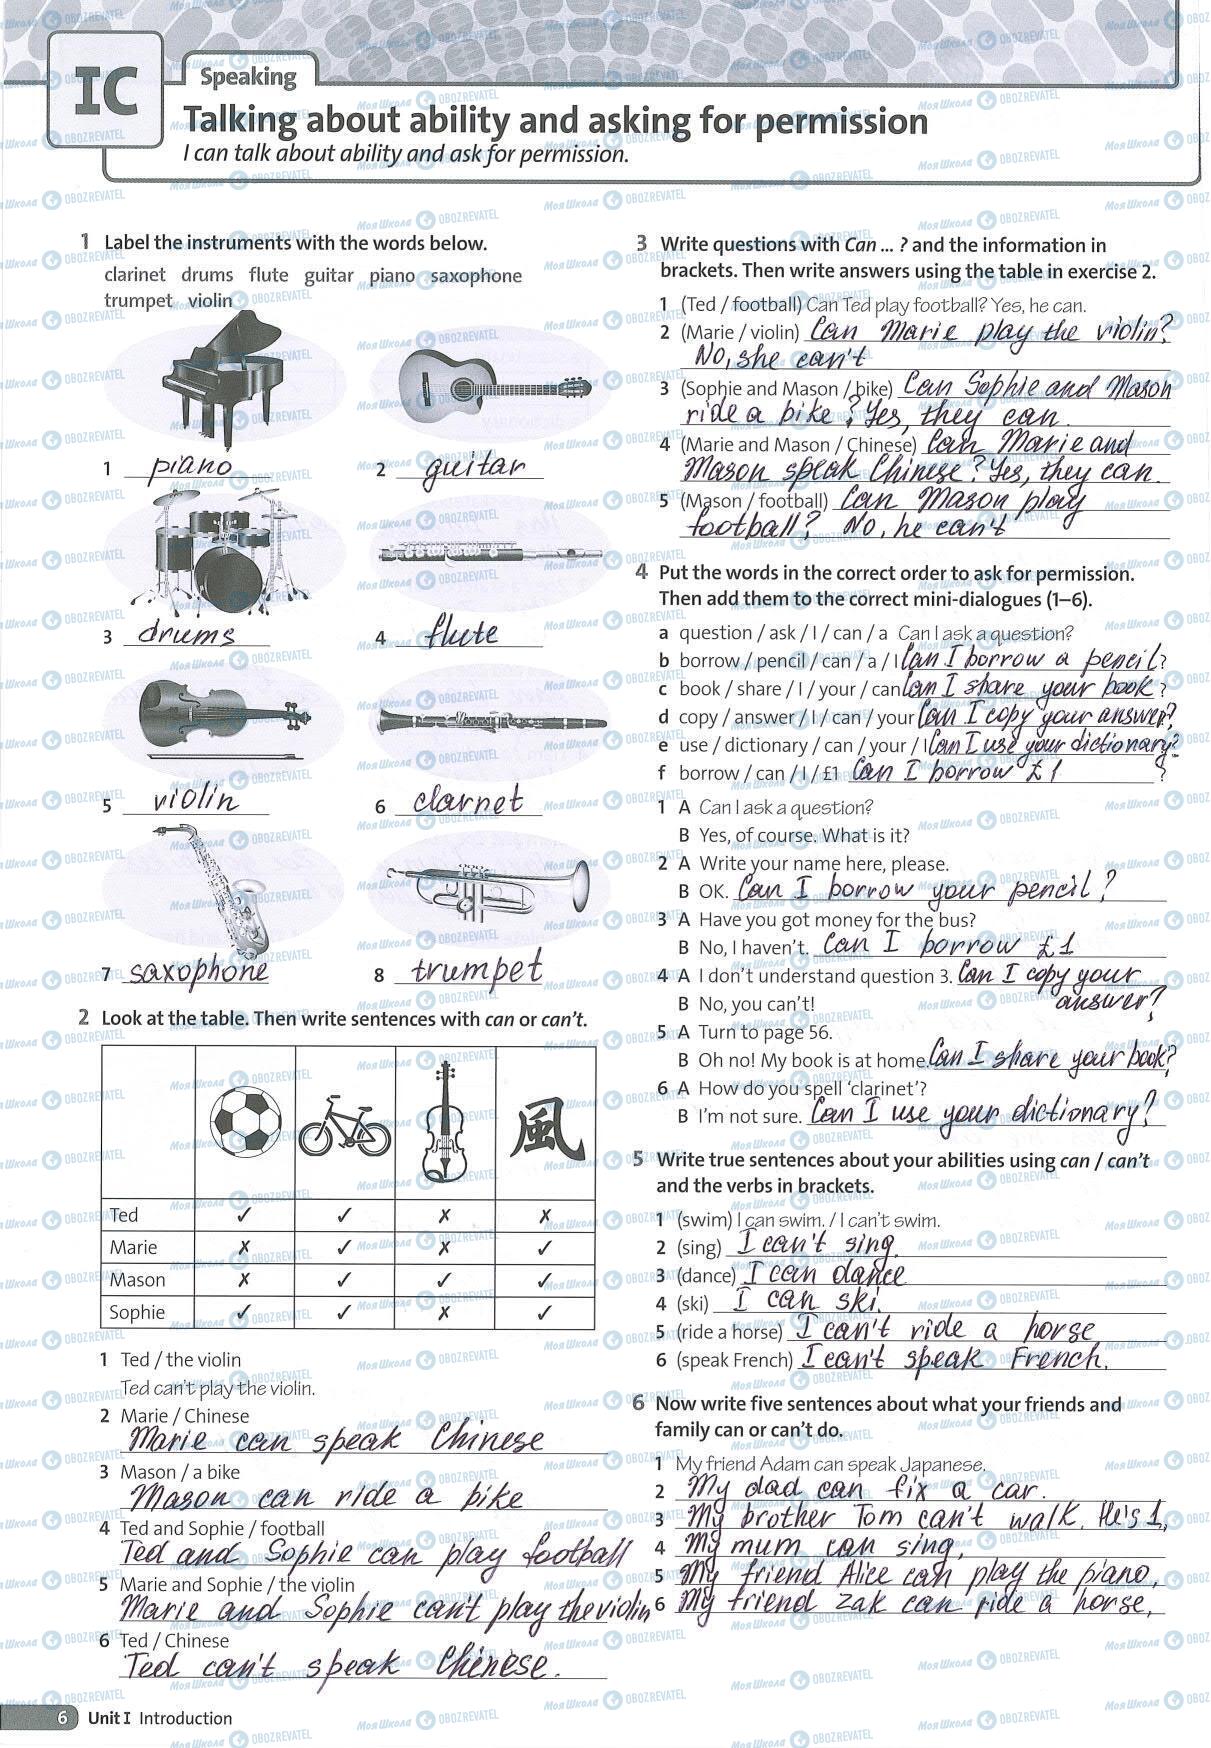 IC
Speaking
Talking about ability and asking for permission
I can talk about ability and ask for permission.
1 Label the instruments with the words below.
clarinet drums flute guitar piano saxophone
trumpet violin
1 piano
2 guitar
3 drums
4 flute
5 violin
6 clarnet
7 saxophone
8 trumpet
2 Look at the table. Then write sentences with can or can't.
風
Ted ✓ ✓ ✗ ✗
Marie ✗ ✓ ✗ ✓
Mason ✗ ✓ ✓ ✓
Sophie ✓ ✓ ✗ ✓
1 Ted / the violin
Ted can't play the violin.
2 Marie / Chinese
Marie can speak Chinese
3 Mason / a bike
Mason can ride a bike
4 Ted and Sophie / football
Ted and Sophie can play football
5 Marie and Sophie / the violin
Marie and Sophie can't play the violin
6 Ted / Chinese
Ted can't speak Chinese.
3 Write questions with Can ... ? and the information in
brackets. Then write answers using the table in exercise 2.
1 (Ted / football) Can Ted play football? Yes, he can.
2 (Marie / violin) Can Marie play the violin?
No, she can't
3 (Sophie and Mason / bike) Can Sophie and Mason
ride a bike? Yes, they can.
4 (Marie and Mason / Chinese) Can Marie and
Mason speak Chinese? Yes, they can.
5 (Mason / football) Can Mason play
football? No, he can't
4 Put the words in the correct order to ask for permission.
Then add them to the correct mini-dialogues (1–6).
a question / ask / I / can / a Can I ask a question?
b borrow / pencil / can / a / I Can I borrow a pencil?
c book / share / I / your / can Can I share your book?
d copy / answer / I / can / your Can I copy your answer?
e use / dictionary / can / your / I Can I use your dictionary?
f borrow / can / I / £1 Can I borrow £1 ?
1 A Can I ask a question?
B Yes, of course. What is it?
2 A Write your name here, please.
B OK. Can I borrow your pencil?
3 A Have you got money for the bus?
B No, I haven't. Can I borrow £1
4 A I don't understand question 3. Can I copy your
B No, you can't! answer?
5 A Turn to page 56.
B Oh no! My book is at home. Can I share your book?
6 A How do you spell 'clarinet'?
B I'm not sure. Can I use your dictionary?
5 Write true sentences about your abilities using can / can't
and the verbs in brackets.
1 (swim) I can swim. / I can't swim.
2 (sing) I can't sing.
3 (dance) I can dance
4 (ski) I can ski.
5 (ride a horse) I can't ride a horse
6 (speak French) I can't speak French.
6 Now write five sentences about what your friends and
family can or can't do.
1 My friend Adam can speak Japanese.
2 My dad can fix a car.
3 My brother Tom can't walk. He's 1.
4 My mum can sing.
5 My friend Alice can play the piano.
6 My friend Zak can ride a horse.
6 Unit I Introduction
Моя Школа OBOZREVATEL